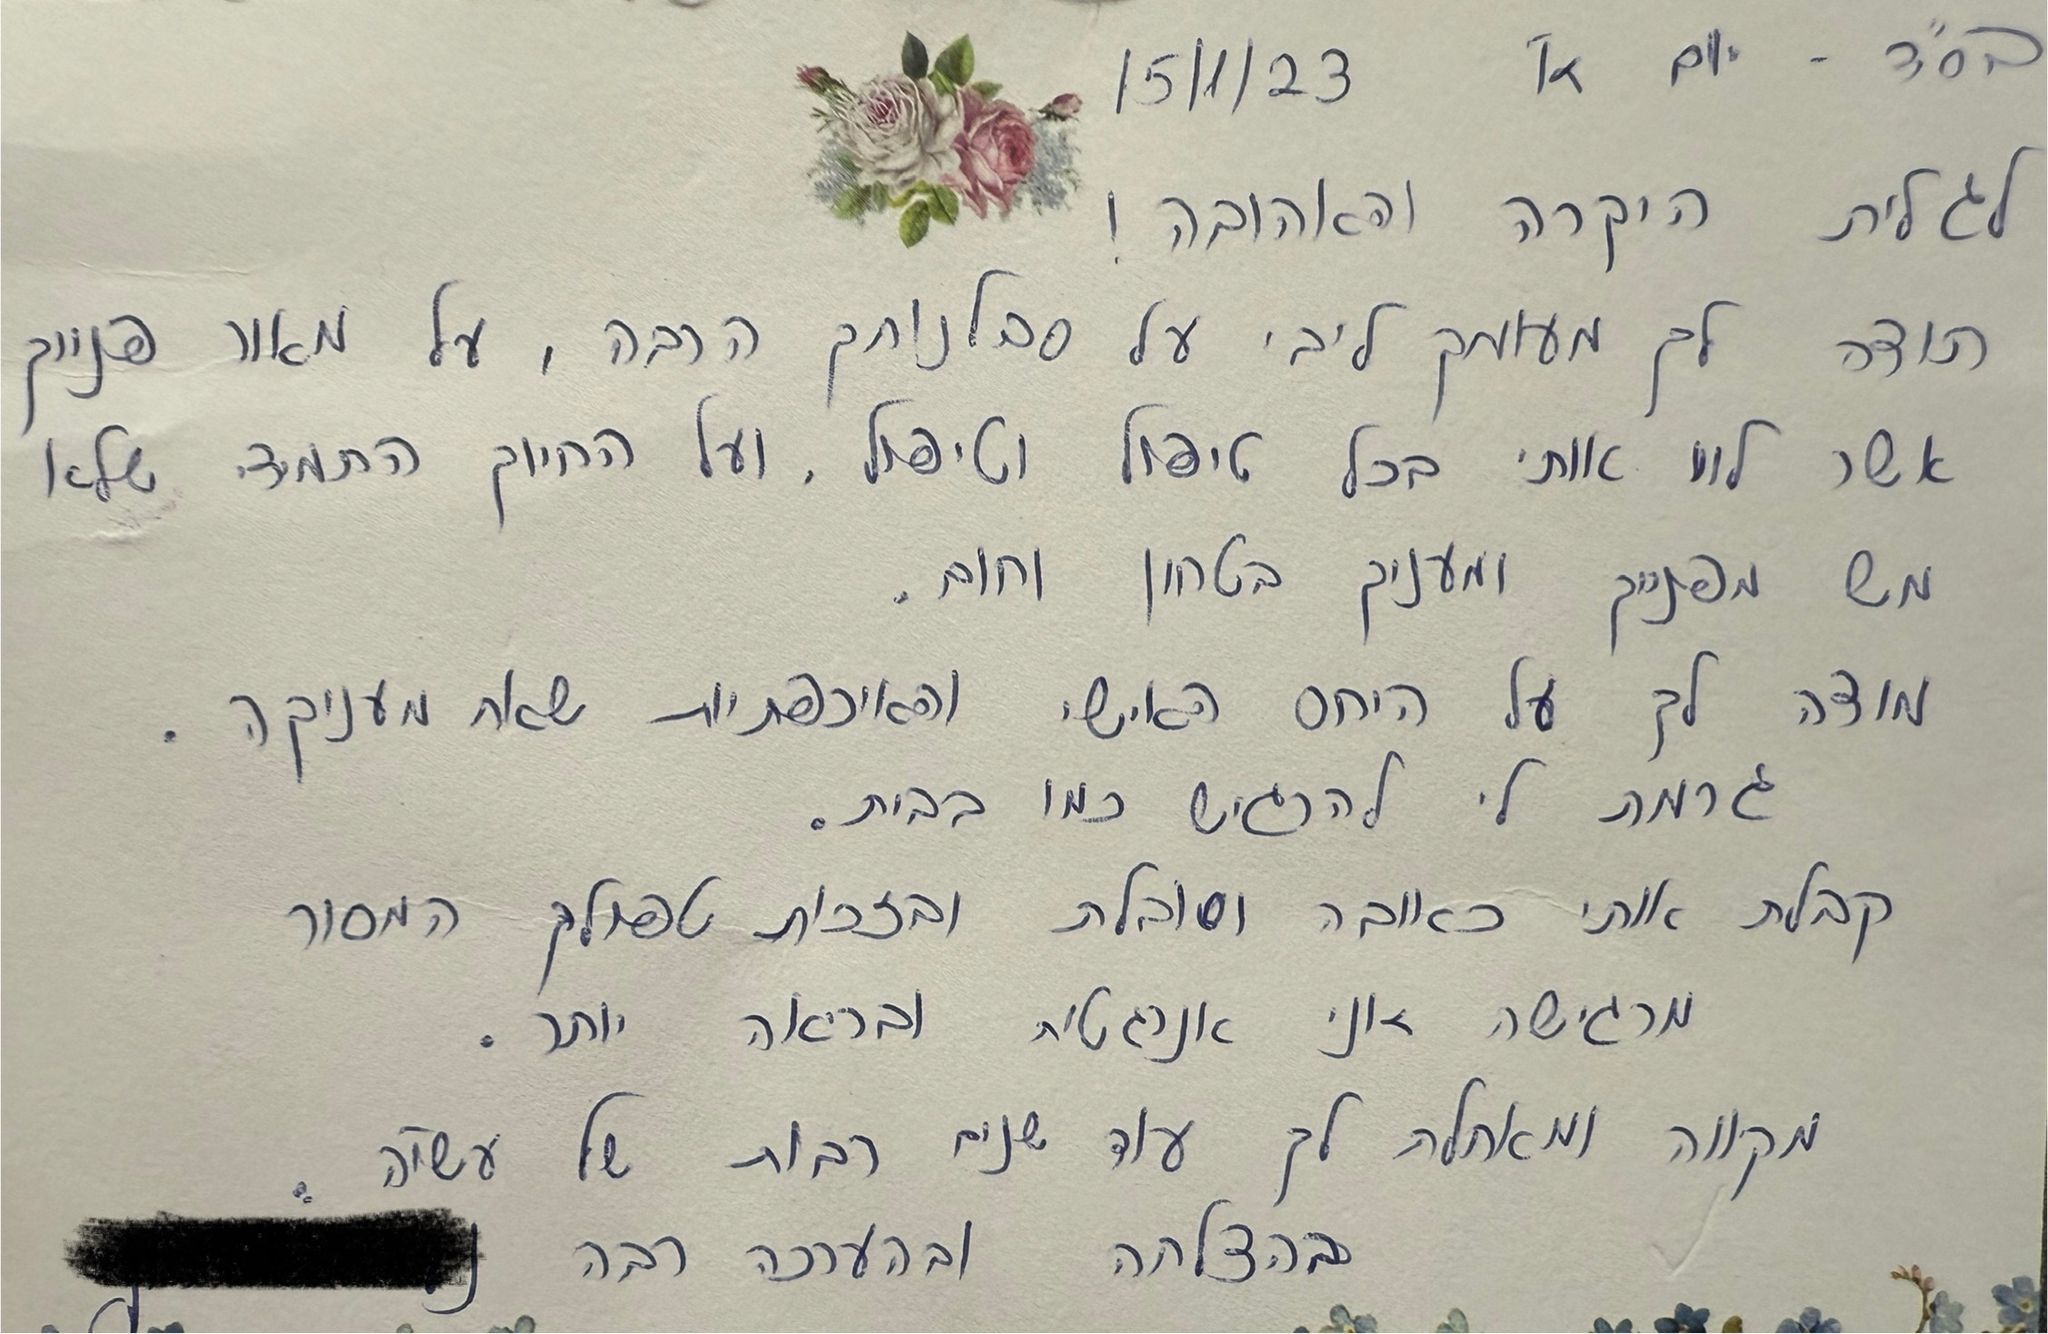 בס"ד - יום א' 15/1/23
לגלית היקרה והאהובה!
תודה לך מעומק ליבי על סבלנותך הרבה, על מאור פנייך
אשר לווה אותי בכל טיפול וטיפול, ועל החיוך התמידי שלא
מש מפנייך ומעניק בטחון וחום.
מודה לך על היחס האישי והאיכפתיות שאת מעניקה.
גרמת לי להרגיש כמו בבית.
קבלת אותי כאובה וסובלת ובזכות טפולך המסור
מרגישה אני אנרגטית ובריאה יותר.
מקווה ומאחלת לך עוד שנים רבות של עשיה.
בהצלחה ובהערכה רבה